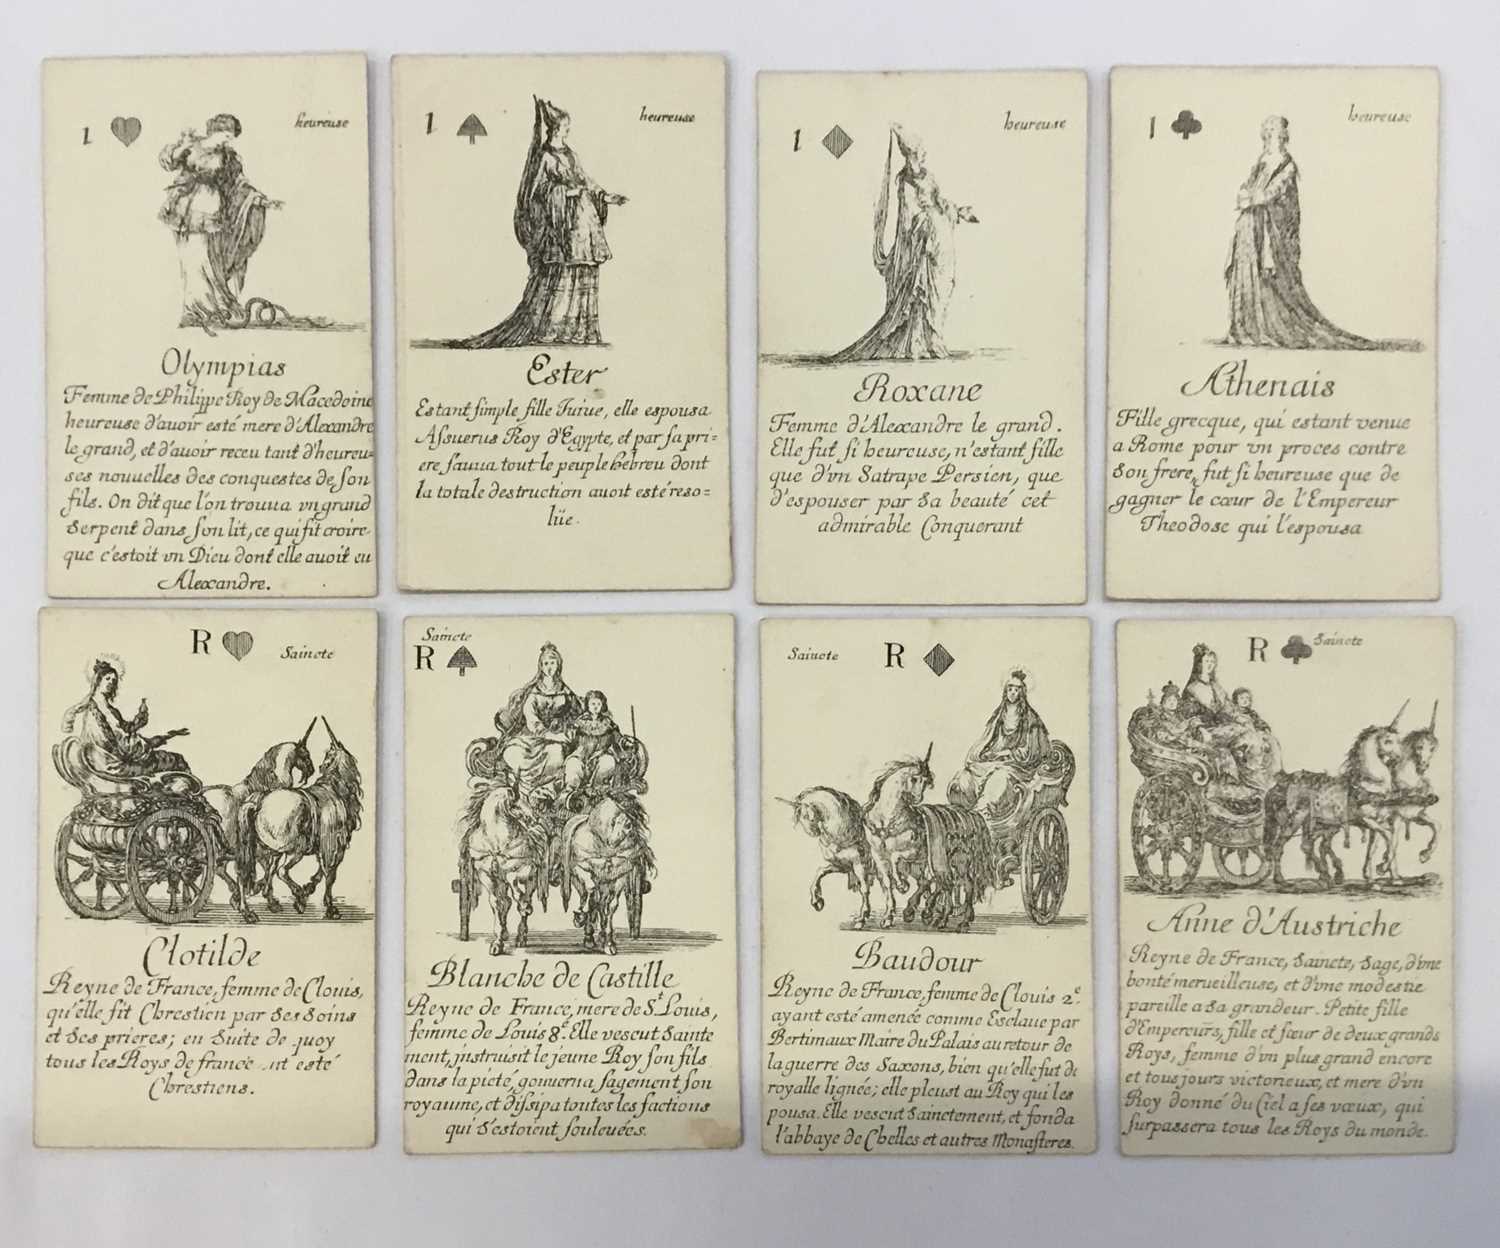 1 heureuse
Olympias
Femme de Philippe Roy de Macedoine
heureuse d'auoir esté mere d'Alexandre
le grand, et d'auoir receu tant d'heureu=
ses nouuelles des conquestes de son
fils. On dit que l'on trouua vn grand
serpent dans son lit, ce qui fit croire
que c'estoit vn Dieu dont elle auoit eu
Alexandre.
1 heureuse
Ester
Estant simple fille Iuiue, elle espousa
Assuerus Roy d'Egypte, et par sa pri=
ere sauua tout le peuple hebreu dont
la totale destruction auoit esté reso=
lüe.
1 heureuse
Roxane
Femme d'Alexandre le grand.
Elle fut si heureuse, n'estant fille
que d'vn Satrape Persien, que
d'espouser par sa beauté cet
admirable Conquerant
1 heureuse
Athenais
Fille grecque, qui estant venue
a Rome pour vn proces contre
son frere, fut si heureuse que de
gagner le cœur de l'Empereur
Theodose qui l'espousa
R Saincte
Clotilde
Reyne de France, femme de Clouis,
qu'elle fit Chrestien par ses soins
et ses prieres; en suite de quoy
tous les Roys de france ont esté
Chrestiens.
Saincte
R
Blanche de Castille
Reyne de France, mere de St. Louis,
femme de Louis 8e. Elle vescut sainte
ment, instruisit le jeune Roy son fils
dans la pieté, gouuerna sagement son
royaume, et dissipa toutes les factions
qui s'estoient souleuées.
Saincte R
Baudour
Reyne de France, femme de Clouis 2e.
ayant esté amenée comme Esclaue par
Bertimaux Maire du Palais au retour de
la guerre des Saxons, bien qu'elle fut de
royalle lignée; elle pleust au Roy qui les
pousa. Elle vescut sainctement, et fonda
l'abbaye de Chelles et autres Monasteres.
R Saincte
Anne d'Austriche
Reyne de France, saincte, sage, d'vne
bonté merueilleuse, et d'vne modestie
pareille a sa grandeur. Petite fille
d'Empereurs, fille et sœur de deux grands
Roys, femme d'vn plus grand encore
et tousjours victorieux, et mere d'vn
Roy donné du Ciel a ses vœux, qui
surpassera tous les Roys du monde.